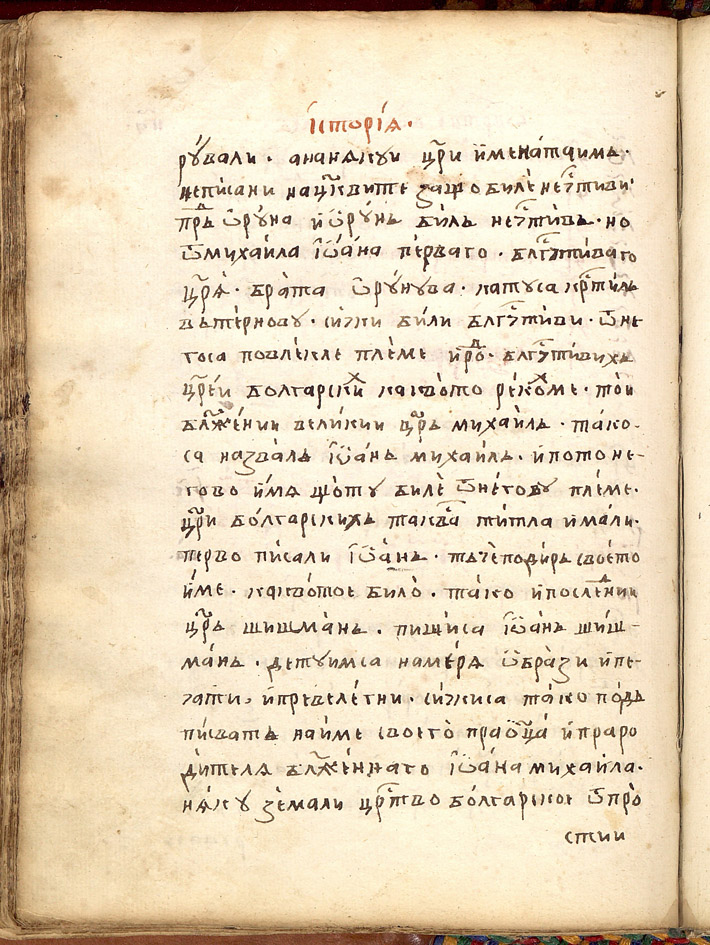 їсторїѧ.
рꙋвали. ананѧкꙋи цр҃и именатаимъ.
неписани нацр҃квите защо биле нечⷭ҇тиви.
прⷣъ ѿрꙋна и ѿрꙋнь биль нечⷭ҇тивъ. но
ѿ михаила їѡана перваго. блгⷭ҇чтиваго
цр҃ѧ. брата ѿрꙋнꙋва. катꙋса крⷭ҇тиль
вътерновꙋ. сички били блгⷭ҇чтиви. ѿне
госа повлекле племе и роⷣ. блгⷭ҇чтивихъ
цр҃еи болгарскиⷯ каквото рекоⷯме. тои
бл҃женїи великии цр҃ъ михаилъ. тако-
са назвалъ їѡанъ михаилъ. ипото не-
гово имѧ щотꙋ биле ѿнеговꙋ племе.
цр҃и болгарскихъ таквⸯа титла имали.
перво писали їѡанъ. тъчеподиръ своето
име. каквотое било. тако ипослеⷣнии
цр҃ъ шишманъ. пишиса їѡанъ шиш-
манъ. детꙋимса намерѧ ѡбрази ипе-
чати, ипревелегни. сичкиса тако подъ
писватъ наиме своего праѿца ипраро
дителѧ бл҃женнаго їѡана михаила.
нѧкꙋ земали црⷭ҇тво болгарское ѿпро
стии